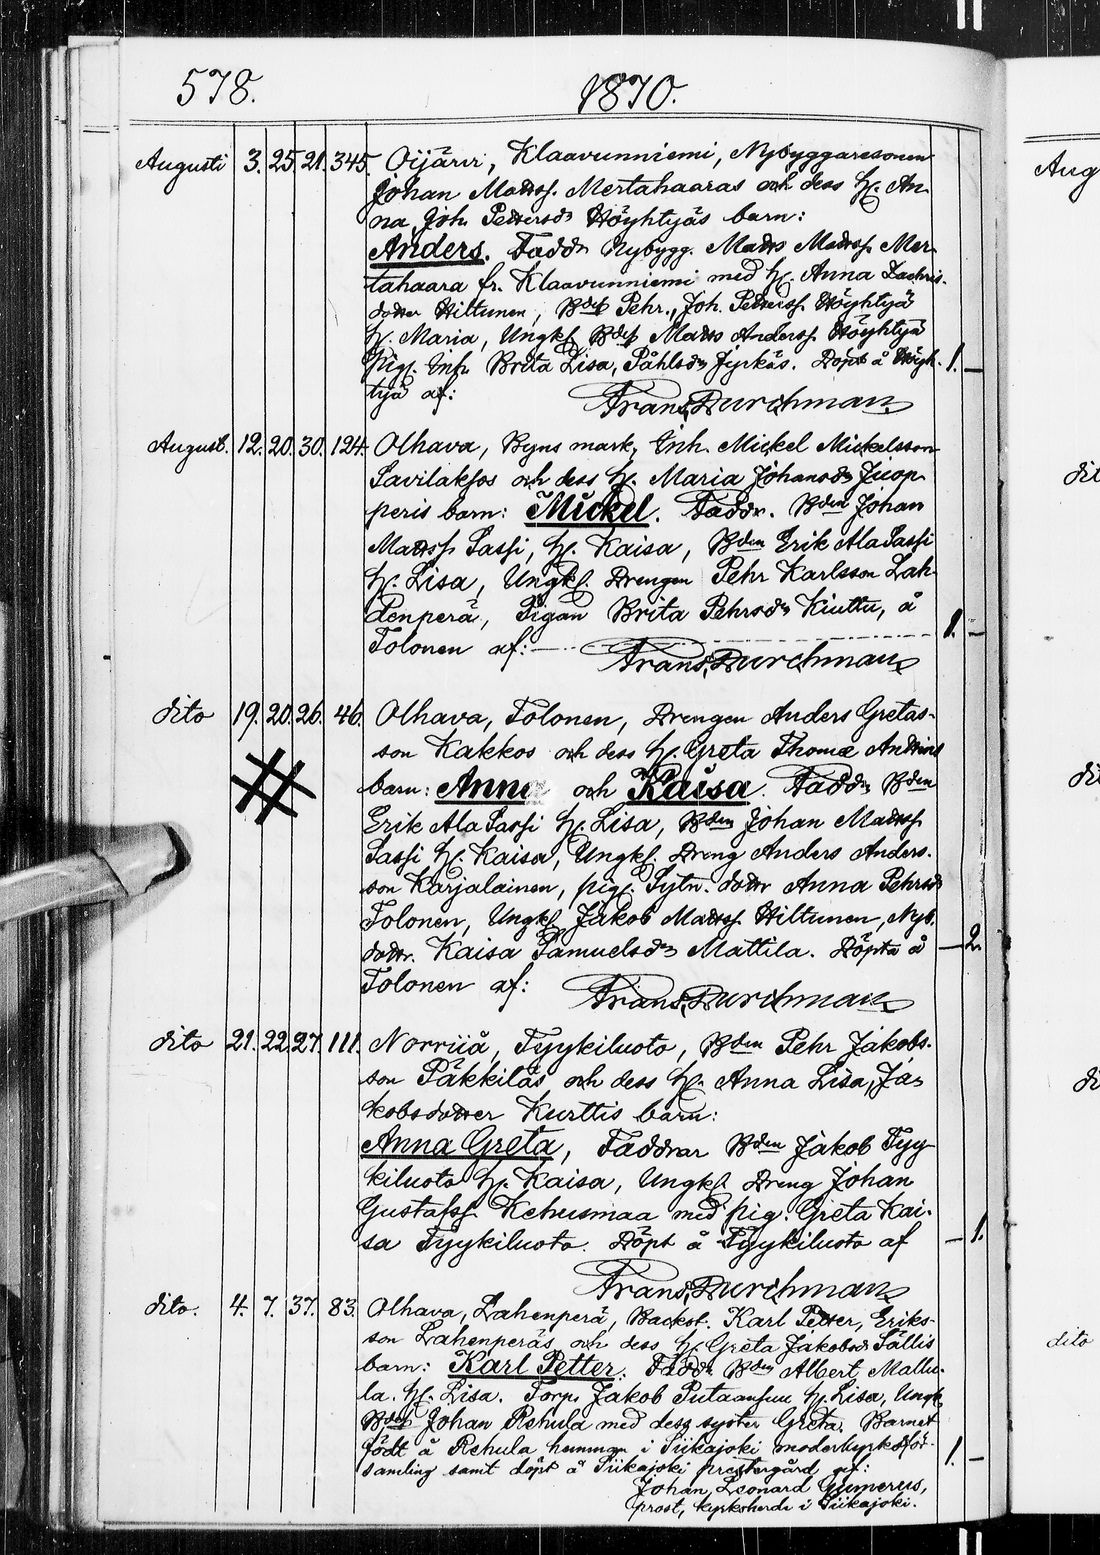 578. 1870.
Augusti 3. 25. 21. 345. Oijärvi, Klaavunniemi, Nybyggaresonen
Johan Mattss. Mertahaaras och dess H. An-
na, Joh. Pettersdr Höyhtyäs barn:
Anders. Faddr Nybygg. Matts Mattss. Mer-
tahaara fr. Klaavunniemi med H. Anna Zachris-
dotter Hiltunen, Bds Pehr, Joh. Petterss. Höyhtyä
H. Maria, Ungk. Bds Matts Anderss. Höyhtyä
Pig. Inh. Brita Lisa, Påhlsdr Jyrkäs. Döpt å Höyh- 1. –
tyä af: Frans Durchman
August. 12. 20. 30. 124. Olhava, Byns mark, Inh. Mickel Mickelsson
Savilaksos och dess H. Maria Johansdr Juop-
peris barn: Mickel. Faddr. Bden Johan
Mattss. Sassi, H. Kaisa, Bden Erik AlaSassi
H. Lisa, Ungk. Drengen Pehr Karlsson Lah-
denperä, Pigan Brita Pehrsdr Kiuttu, å 1. –
Tolonen af: Frans Durchman
dito 19. 20. 26. 46. Olhava, Tolonen, Drengen Anders Gretas-
son Kakkos och dess H. Greta Thomæ
barn: Anna och Kaisa. Faddr Bden
Erik Ala Sassi H. Lisa, Bden Johan Mattss.
Sassi H. Kaisa, Ungk. Dreng Anders Anders-
son Karjalainen, pig. Sytn. dottr Anna Pehrsdr
Tolonen, Ungk. Jakob Mattss. Hiltunen, Nyb.
dottr. Kaisa Samuelsdr Mattila. Döpta å – 2.
Tolonen af: Frans Durchman
dito 21. 22. 27. 111. Norriiå, Tyykiluoto, Bden Pehr Jakobs-
son Päkkiläs och dess H. Anna Lisa, Ja-
kobsdotter Kurttis barn:
Anna Greta, Faddrar Bden Jakob Tyy-
kiluoto H. Kaisa, Ungk. Dreng Johan
Gustafss. Kehusmaa med pig. Greta Kai-
sa Tyykiluoto. Döpt å Tyykiluoto af – 1.
Frans Durchman
dito. 4. 7. 37. 83. Olhava, Lahenperä, Backst. Karl Petter, Eriks-
son Lahenperäs och dess H. Greta Jakobsdr Sällis
barn: Karl Petter. Faddr Bden Albert Mallu-
la. H. Lisa. Torp. Jakob Putaansuu H. Lisa, Ungk.
Bds Johan Rehula med dess syster Greta. Barnet
födt å Rehula hemman i Siikajoki moderkyrkoför- 1. –
samling samt döpt å Siikajoki prestergård af:
Johan Leonard Gumerus,
prost, kyrkoherde i Siikajoki.
Aug
dit
di
di
dito